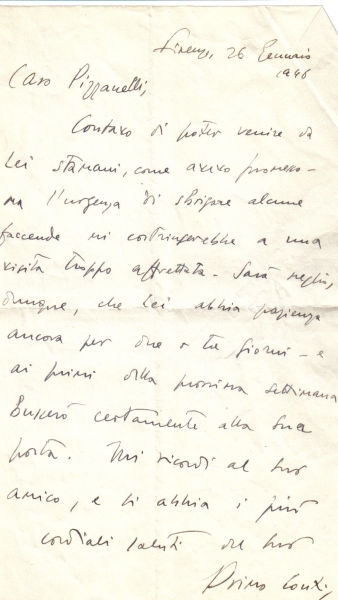 Firenze, 26 Gennaio
1946
Caro Pizzanelli,
Contavo di poter venire da
Lei stamani, come avevo promesso -
ma l'urgenza di sbrigare alcune
faccende mi costringerebbe a una
visita troppo affrettata - Sarà meglio,
dunque, che Lei abbia pazienza
ancora per due o tre giorni - e
ai primi della prossima settimana
busserò certamente alla Sua
porta. Mi ricordi al Suo
amico, e si abbia i più
cordiali saluti del Suo
Primo Conti,